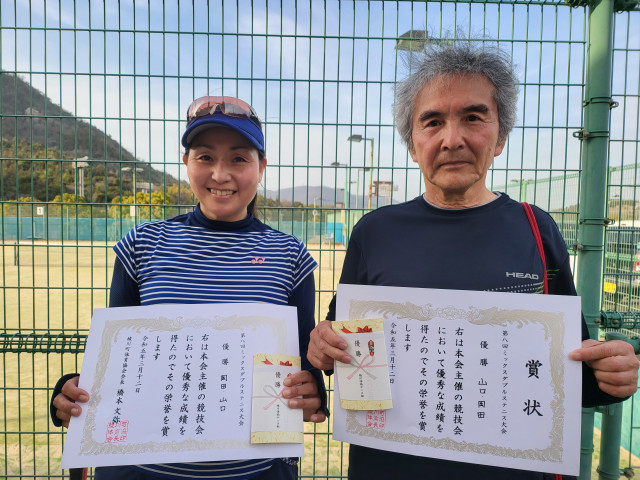 賞状
優勝 山口 岡田
第八回ミックスダブルステニス大会
右は本会主催の競技会
において優秀な成績を
得たのでその栄誉を賞
します
令和五年三月十二日
優勝
HEAD
第八回ミックスダブルステニス大会
優勝 岡田 山口
右は本会主催の競技会
において優秀な成績を
得たのでその栄誉を賞
します
令和五年三月十二日
優勝